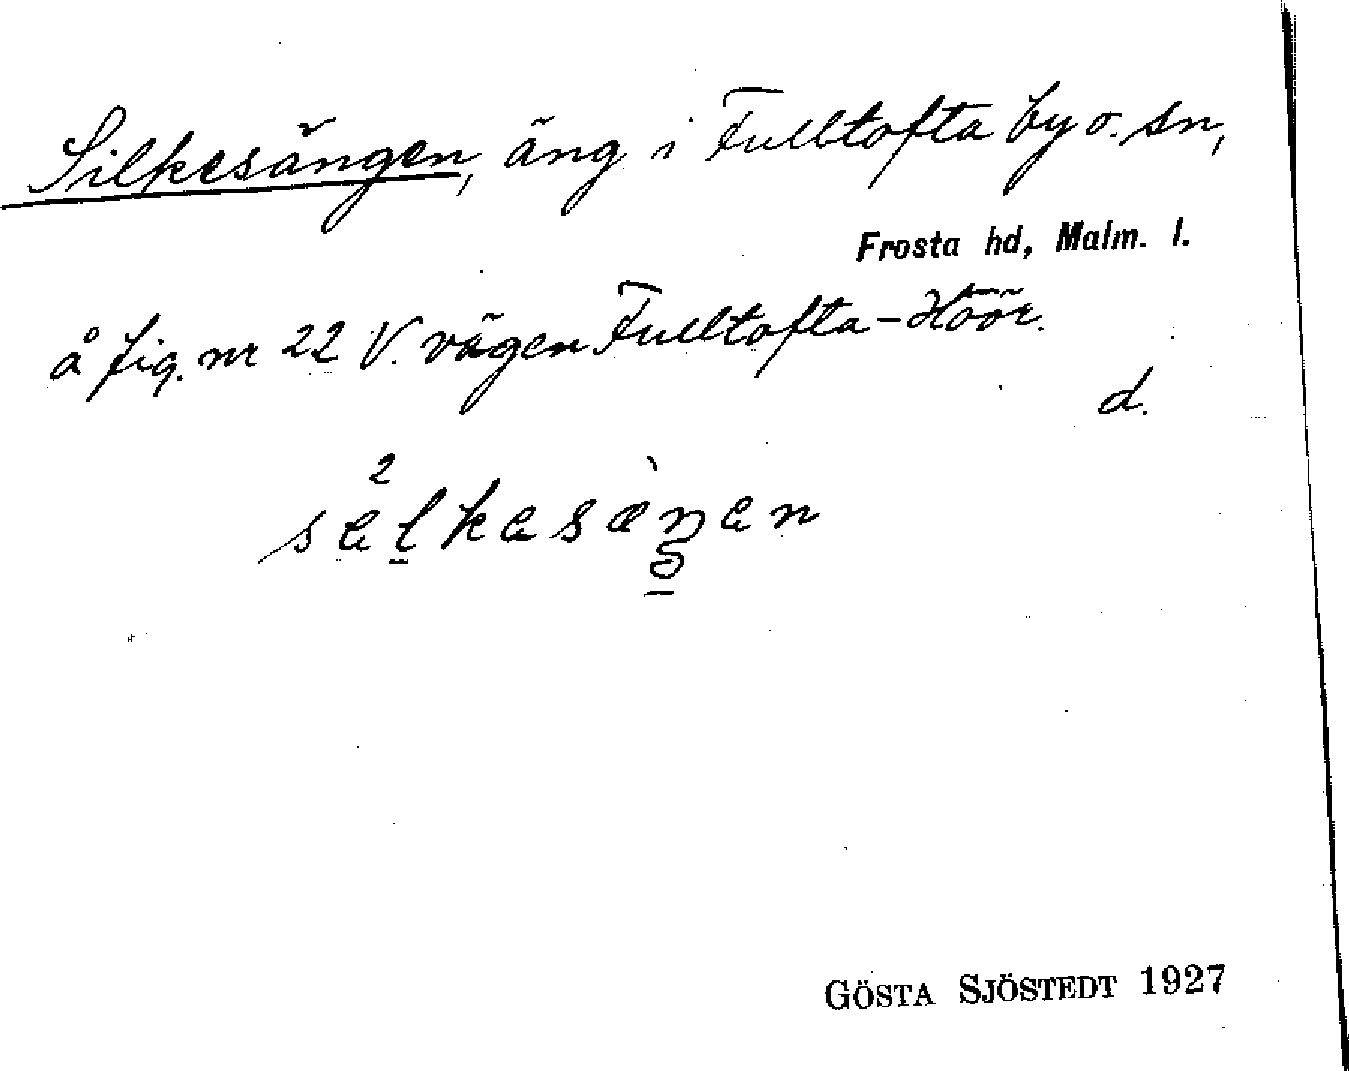 Silkesängen, äng i Fulltofta by o. sn,
Frosta hd, Malm. l.
å fig. nr 22 V. vägen Fulltofta-Höör.
d.
GÖSTA SJÖSTEDT 1927